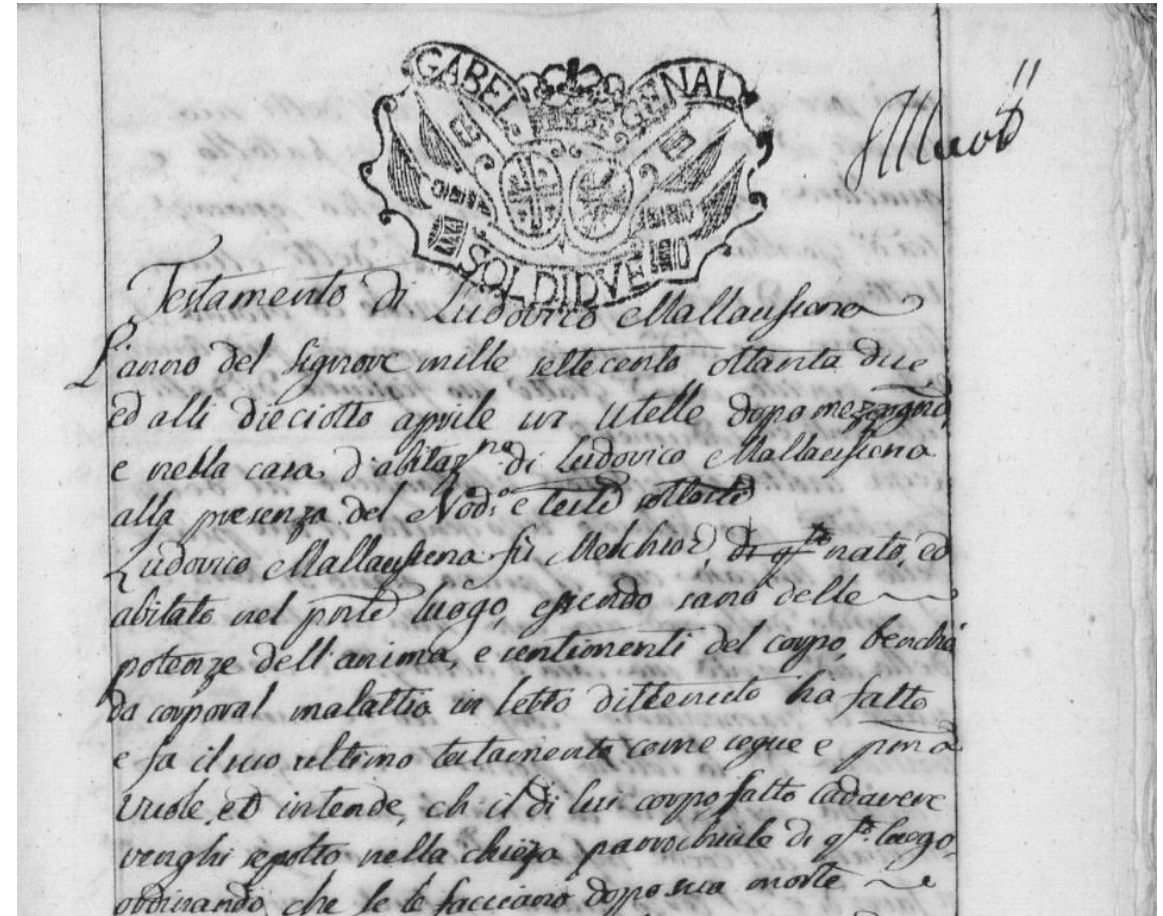 GABEL GENAL
SOLDI DVE
Testamento di Ludovico Mallausena
L'anno del Signore mille settecento ottanta due,
ed alli dieciotto aprile in Utelle dopo mezzogno
e nella casa d'abitazne di Ludovico Mallausena
alla presenza del Nodo e testi sotto
Ludovico Mallausena fu Melchior, di qto nato, ed
abitato nel pnte luogo, essendo sano delle
potenze dell'anima, e sentimenti del corpo, benchè
da corporal malattia in letto dittenuto ha fatto
e fa il suo ultimo testamento come segue e pma
Vuole, ed intende, ch'il di lui corpo fatto cadavere
venghi sepolto nella chieza parrochiale di qto luogo,
ordinando, che se le facciano doppo sua morte